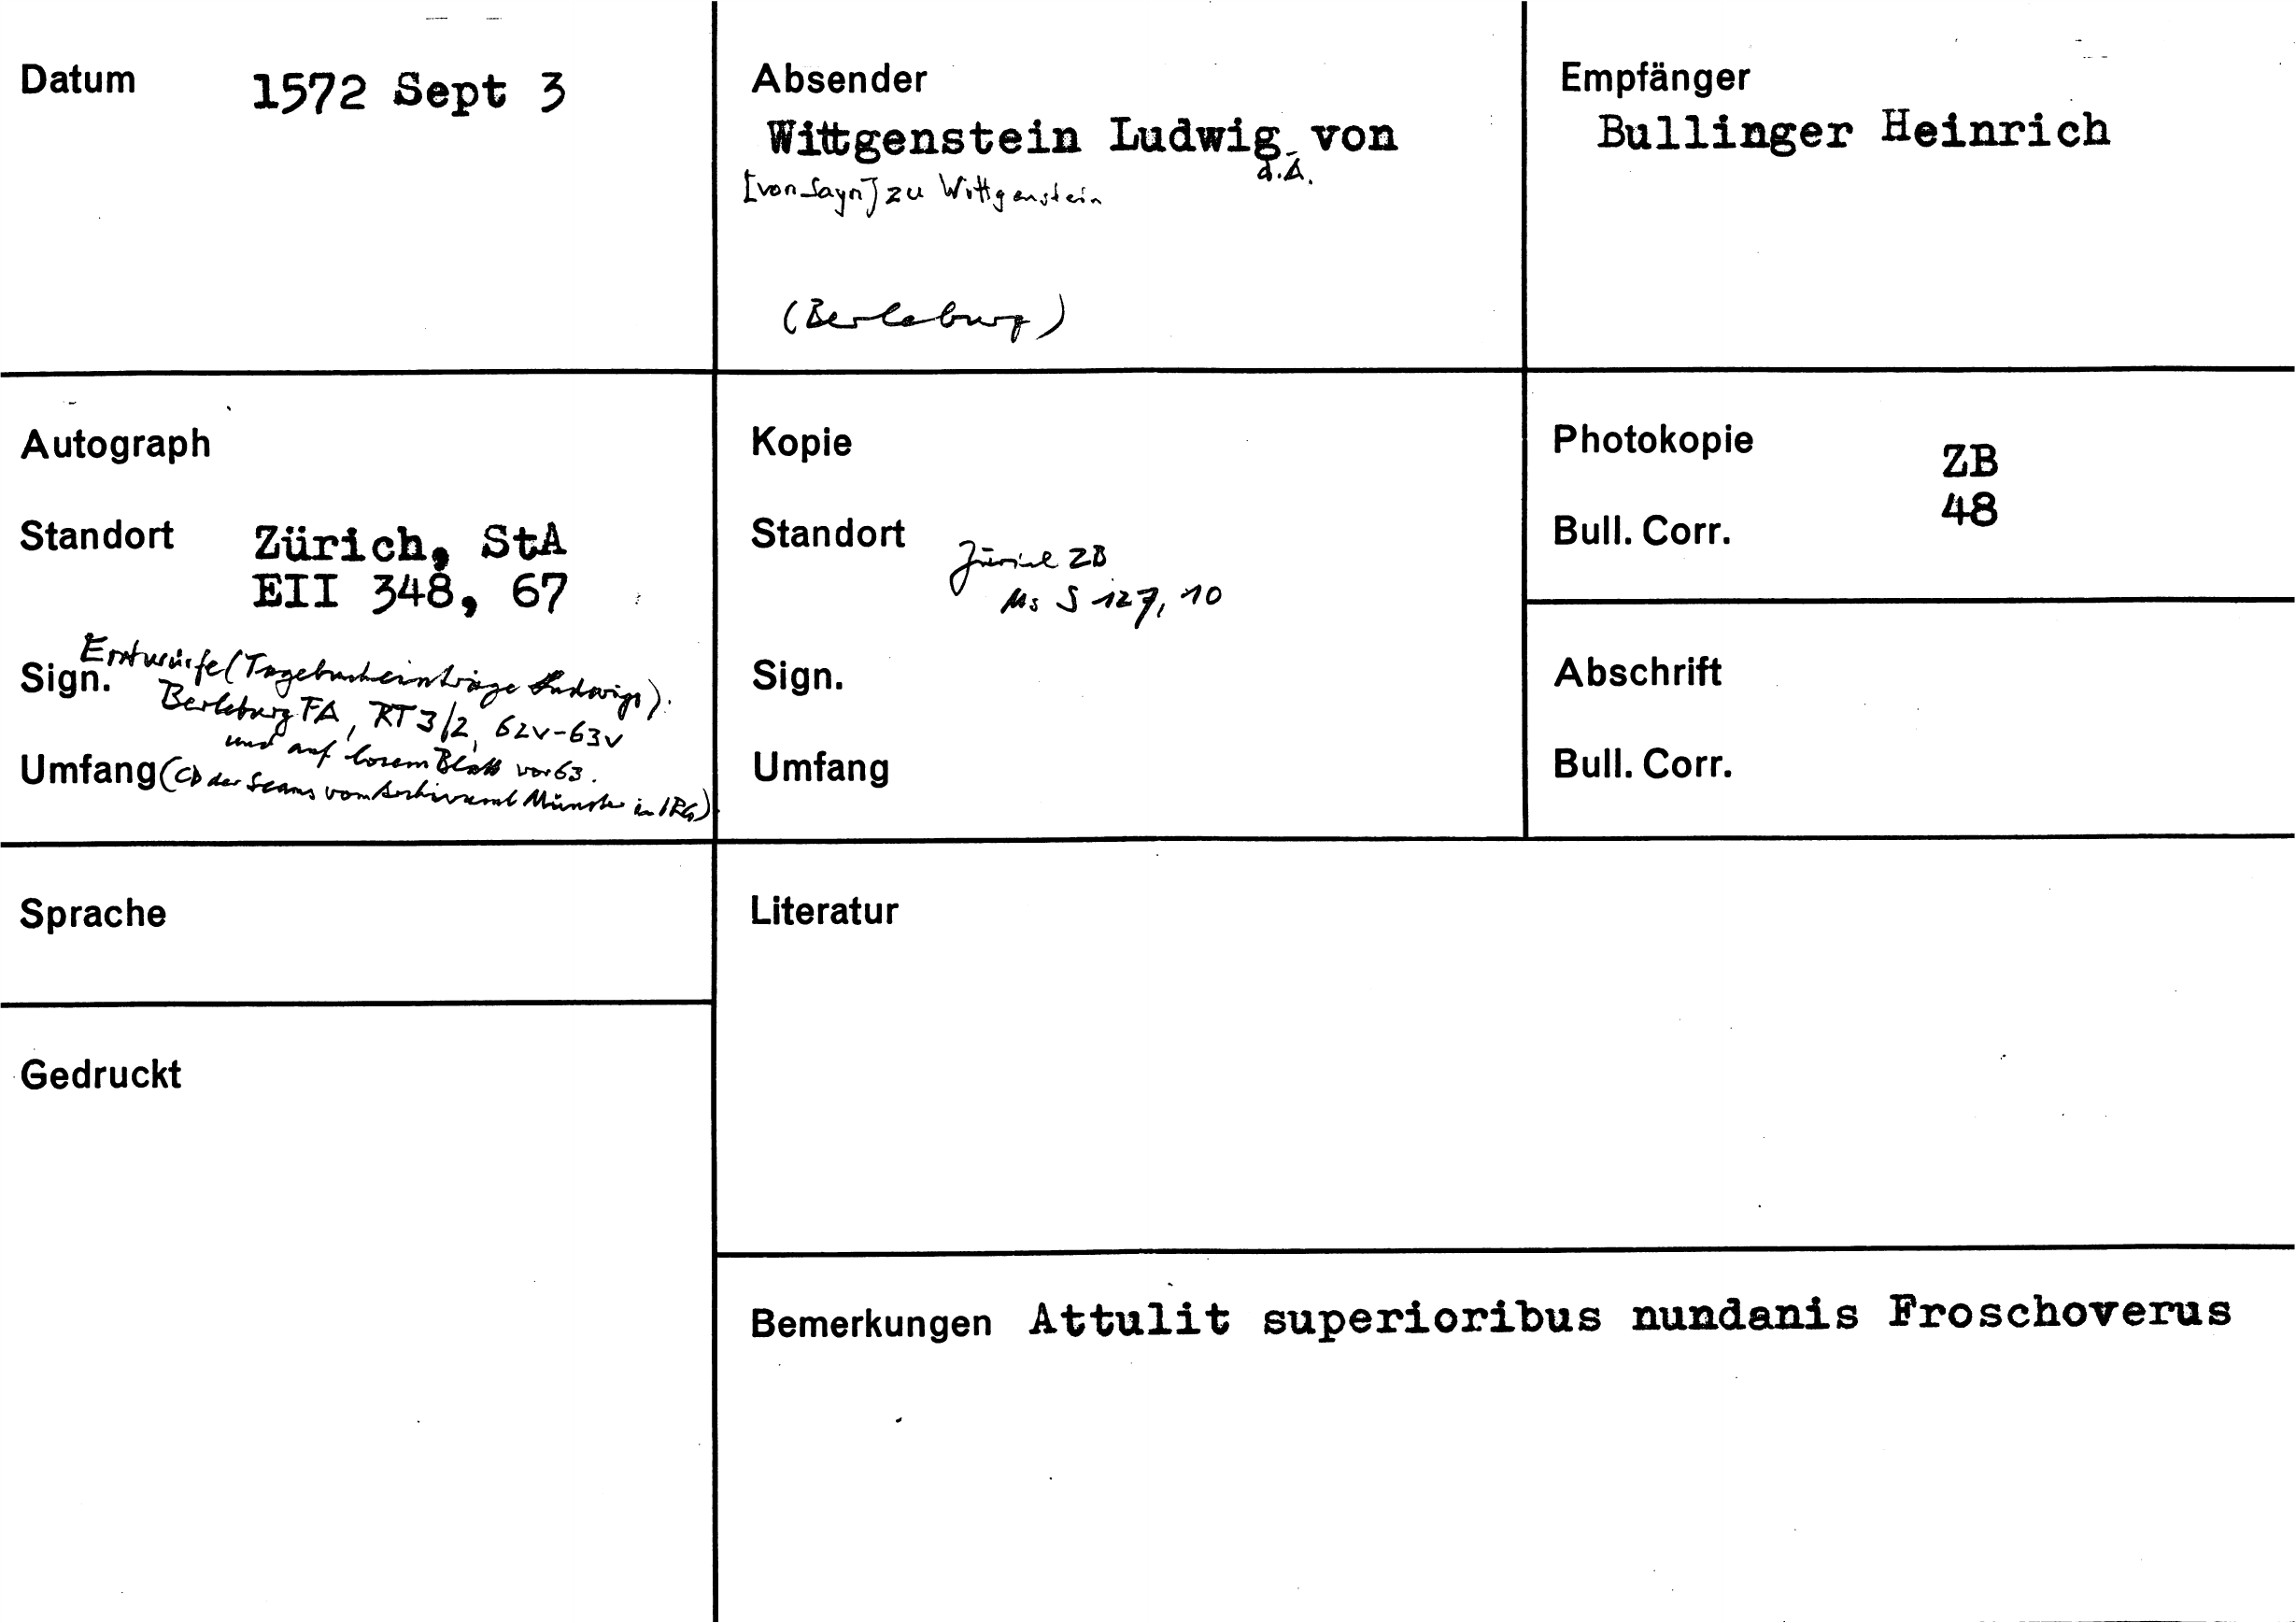 Datum 1572 Sept 3
Absender
Wittgenstein Ludwig von
d.Ä.
[von Sayn] zu Wittgenstein
(Berleburg)
Empfänger
Bullinger Heinrich
Autograph
Standort Zürich, StA
EII 348, 67
Sign. Entwürfe (Tagebucheinträge Ludwigs):
Berleburg FA, RT 3/2, 62v-63v
und auf losem Blatt vor 63.
Umfang (CD der Scans vom Archivamt Münster in IRG)
Kopie
Standort Zürich ZB
Ms S 127, 10
Sign.
Umfang
Photokopie ZB
Bull. Corr. 48
Abschrift
Bull. Corr.
Sprache
Literatur
Gedruckt
Bemerkungen Attulit superioribus nundanis Froschoverus